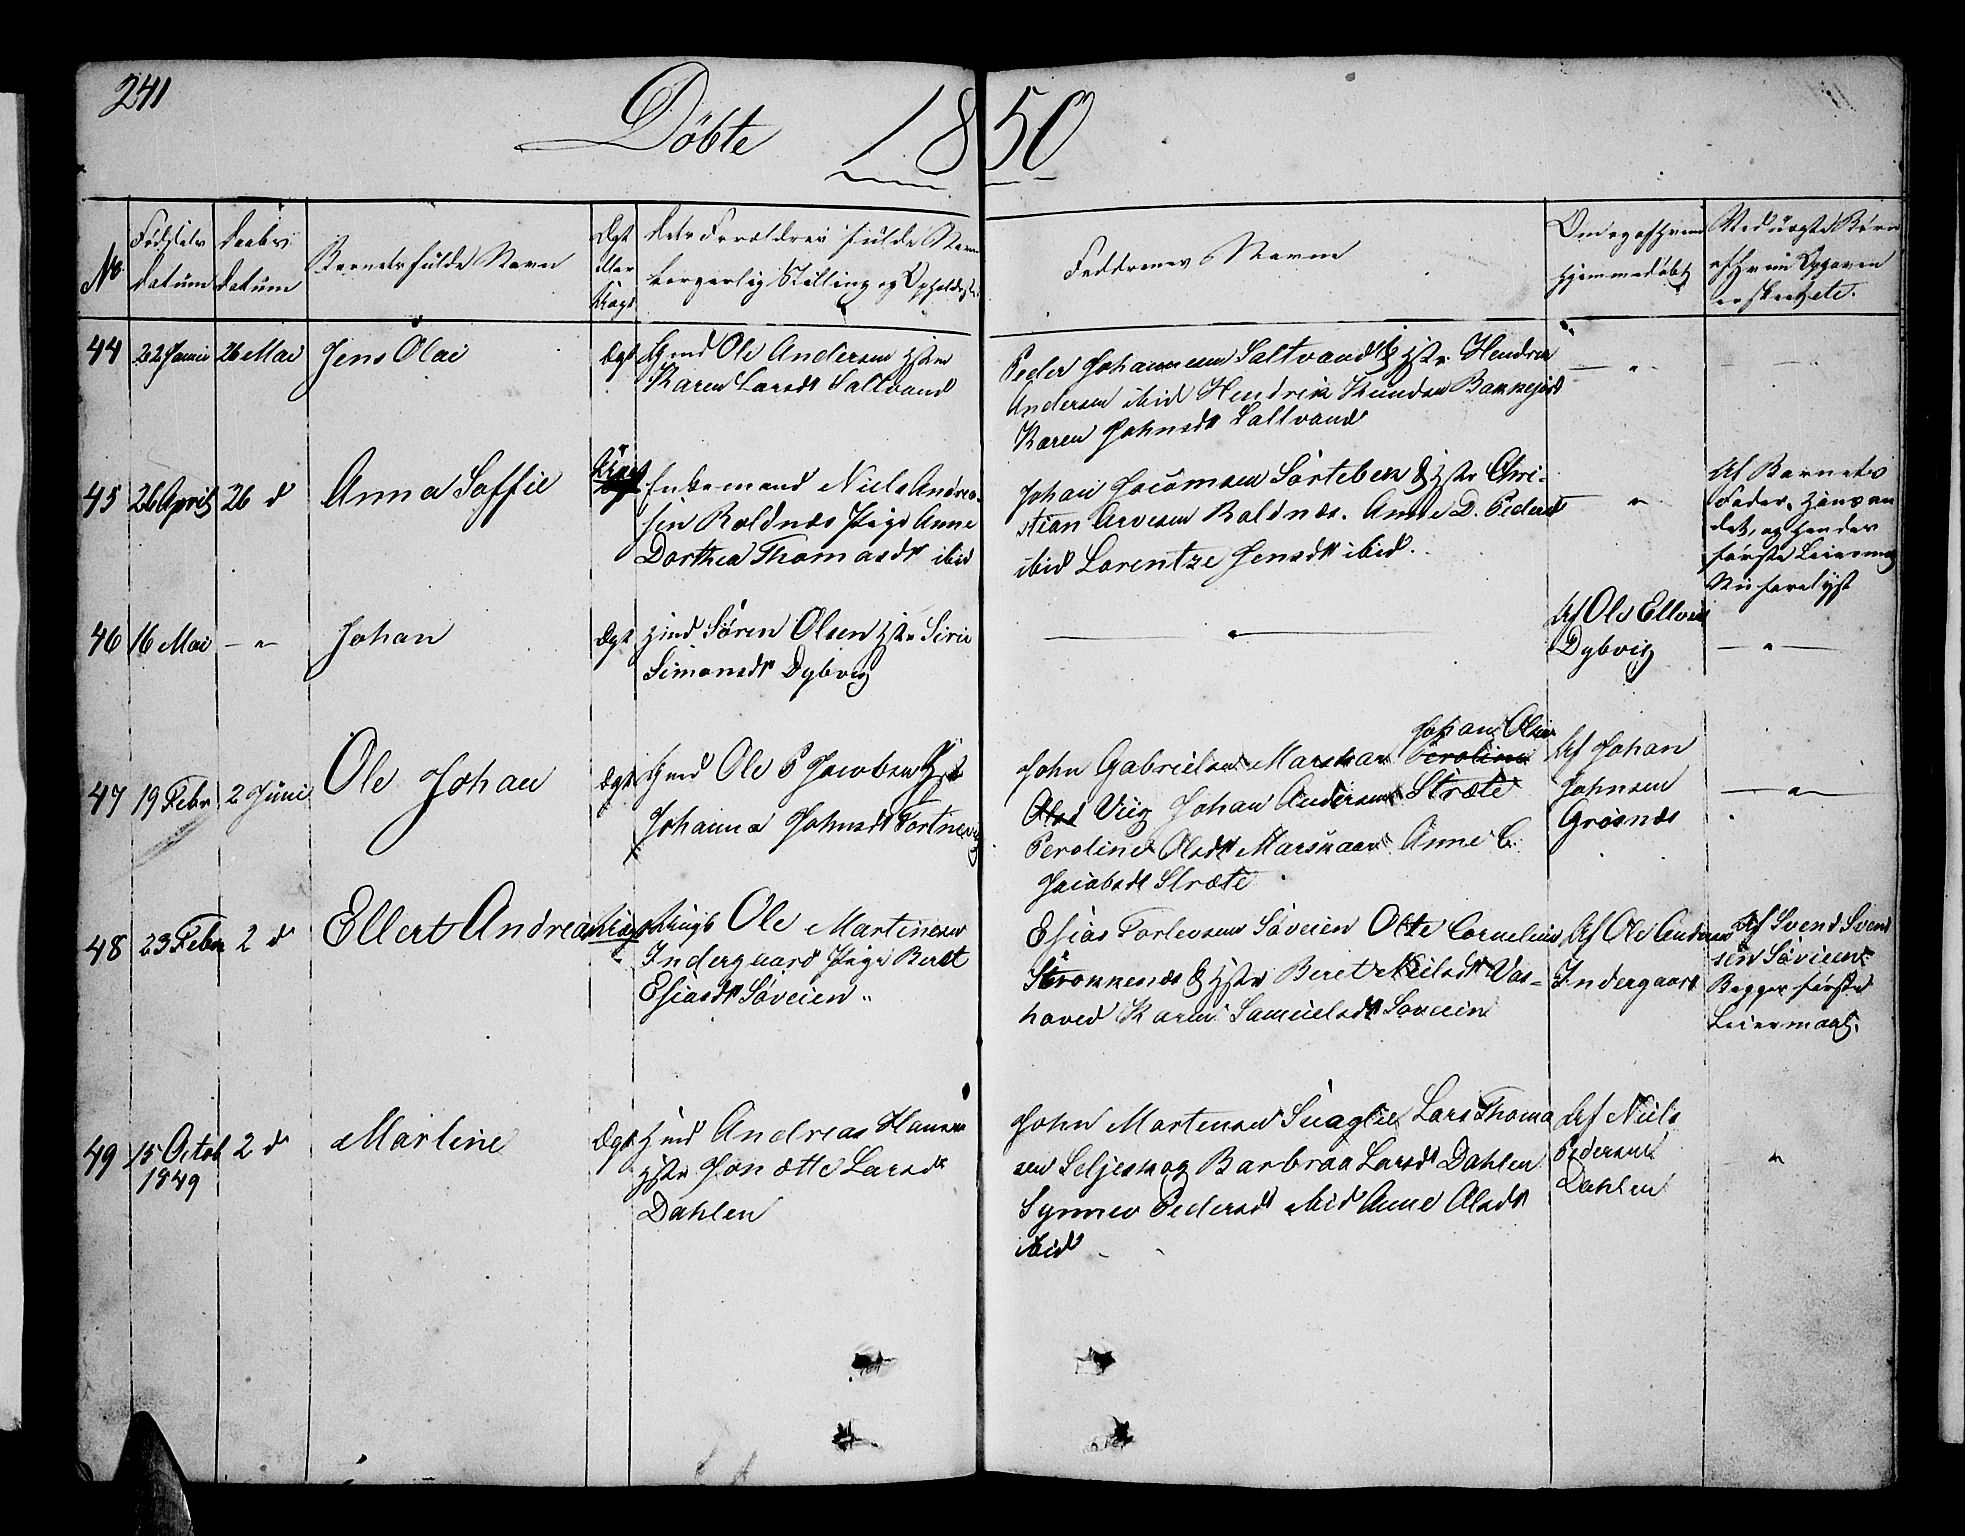 241
Döbte 1850
No.
Fødsels
datum
Daabs
datum
Barnets fulde Navn
Ægt
eller
Uægt
Dets Forældres fulde Navn
borgerlig Stilling og Opholdsst.
Faddrenes Navne
Om og af hvem
hjemmedøbt
Ved uægte Børn
af hvem Opgaven
er skeet etc.
44 22 Januii 26 Mai Jens Olai Ægt Gmd Ole Andersen Hstr
Karen Larsdt Saltvand
Peder Johannesen Saltvand & Hstr. Hendrik
Andersen ibid Hendrik Knudsen Bakkejord
Karen Johnsdt Saltvand
45 26 April 26 d Anna Soffie Uægt Enkemand Niels Andrea-
sen Roldnæs Pige Anne
Dorthea Thomasdt ibid
Johan Joramsen Sörteben & Hstr Chri-
stian Arvesen Roldnæs. Anne D. Pedersd
ibid Lorentze Jensdt ibid.
Af Barnets
Fader, Hans an
det, og hendes
første Leiermaal
46 16 Mai — " Johan Ægt Hmd Sören Olsen Hstr Sirie
Simonsdt Dybvig
Af Ole Ellevs
Dybvig
47 19 Febr 2 Juni Ole Johan Ægt Gmd Ole P Jacobsen Hstr
Johanna Johnsdt Tortnesvig
Johan Olsen
John Gabrielsen Marskar Peroline
Olsd Viig Johan Andersen Stræte
Peroline Olsdt Marskaar Anne C.
Jacobsdt Stræte
Af Johan
Johnsen
Grøsnæs
48 23 Febr 2 d Ellert Andrea Uægt Ungk Ole Martinesen
Indergaard Pige Beret
Esiasdt Søveien
Esias Torlevsen Søveien Otte Cornelius
Strokkenæs & Hstr Beret Nielsdt Vas-
hoved Karen Samuelsdt Søveien
Af Ole Andersen
Indergaard
Af Svend Svend
sen Søveien
Begges første
Leiermaal.
49 15 Octob 2 d Martine Ægt Hmd Andreas Hansen
1849
Hstr Jonætte Larsdt
Dahlen
John Mortensen Snaglie Lars Thoma
sen Seljeskog Barbraa Larsdt Dahlen
Synnev Pedersdt ibid Anne Olsdt
ibid
Af Niels
Pedersen
Dahlen